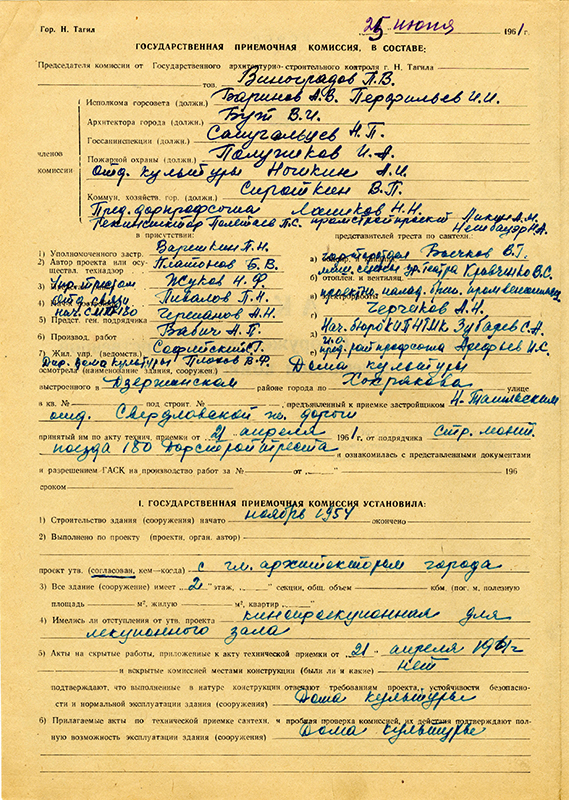 Гор. Н. Тагил 25 июня 1961 г.
ГОСУДАРСТВЕННАЯ ПРИЕМОЧНАЯ КОМИССИЯ, В СОСТАВЕ:
Председателя комиссии от Государственного архитектурно-строительного контроля г. Н. Тагила
тов. Виноградов П.В.
членов комиссии
Исполкома горсовета (должн.) Баринов А.В. Перфильев И.И.
Архитектора города (должн.) Бут В.И.
Госсанинспекции (должн.) Н.П.
Пожарной охраны (должн.) Полужиков И.А.
отд. культуры Ногикин А.И.
Коммун. хозяйств. гор. (должн.) Сироткин В.П.
Пред. дорпрофсожа Н.Н.
П.С. А.М.
Н.А.
в присутствии: представителей треста по сантехн.:
1) Уполномоченного застр. Варешкин П.Н.
2) Автор проекта или осуществл. технадзор Платонов Б.В.
3) Жуков Н.Ф.
4) отд. связи Пивалов П.Н.
5) Предст. ген. подрядчика Гершанов А.Н.
нач. СМП 180
6) Производ. работ Бабич А.П.
7) Жил. упр. (ведомств.) Софийский Г.
Дир. Дома культуры Плохов В.Ф.
а) Бочков В.Г.
б) отоплен. и вентиляц. Кравченко В.С.
Черчиков А.Н.
Нач. Зубарев С.А.
и.о. пред. райпрофсожа Арефьев И.С.
осмотрела (наименование здания, сооружен.) Дома культуры
выстроенного в Дзержинском районе города по Хохрякова улице
в кв. № под строит. № , предъявленный к приемке застройщиком Н. Тагильским
отд. Свердловской ж. дороги
принятый им по акту технич. приемки от 21 апреля 1961 г. от подрядчика Стр. монт.
поезда 180 Дорстройтреста и ознакомилась с представленными документами
и разрешением ГАСК на производство работ за № от „ “ 196
сроком
I. ГОСУДАРСТВЕННАЯ ПРИЕМОЧНАЯ КОМИССИЯ УСТАНОВИЛА:
1) Строительство здания (сооружения) начато ноябрь 1957 окончено
2) Выполнено по проекту (проекти, орган. автор)
проект утв. (согласован, кем—когда) с гл. архитектором города
3) Все здание (сооружение) имеет 2 этаж, „ “ секции, общ. объем кбм. (пог. м, полезную
площадь м², жилую м², квартир „ “
4) Имелись ли отступления от утв. проекта кинопроекционная для
лекционного зала
5) Акты на скрытые работы, приложенные к акту технической приемки от 21 апреля 1961 г
и вскрытие комиссией местами конструкции (были ли и какие) нет
подтверждают, что выполненные в натуре конструкции отвечают требованиям проекта, устойчивости безопасности и нормальной эксплуатации здания (сооружения) Дома культуры
6) Прилагаемые акты по технической приемке сантехн. и пробная проверка комиссией, их действия подтверждают полную возможность эксплуатации здания (сооружения) Дома культуры